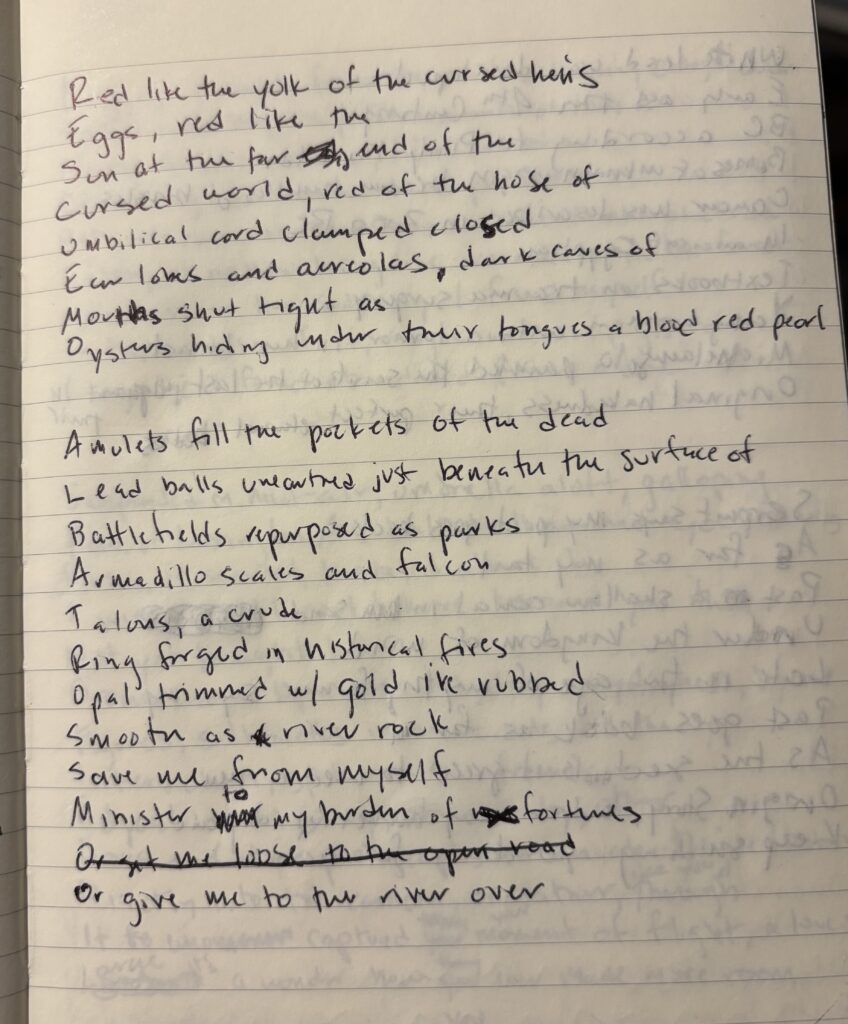 Red like the yolk of the cursed hen's
Eggs, red like the
Sun at the far end of the
Cursed world, red of the hose of
Umbilical cord clamped closed
Ear lobes and aereolas, dark caves of
Mouths shut tight as
Oysters hiding under their tongues a blood red pearl
Amulets fill the pockets of the dead
Lead balls unearthed just beneath the surface of
Battlefields repurposed as parks
Armadillo scales and falcon
Talons, a crude
Ring forged in historical fires
Opal trimmed w/ gold I've rubbed
Smooth as river rock
Save me from myself
Minister to my burden of fortunes
Or set me loose to the open road
Or give me to the river over